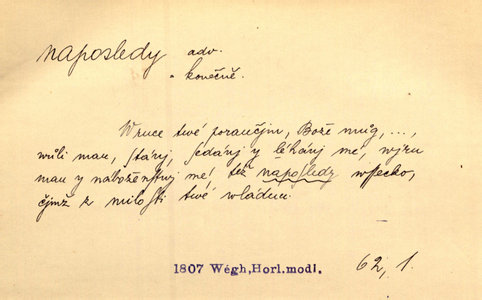 naposledy adv.
konečně.
W ruce twé poraučjm, Bože mug, ...,
wůli mau, stánj, sedánj y léhánj mé, wjru
mau y nábožénstwj mé! též náposledy wssecko,
čjmž z milosti twé wládnu.
1807 Wégh, Horl.modl. 62, 1.